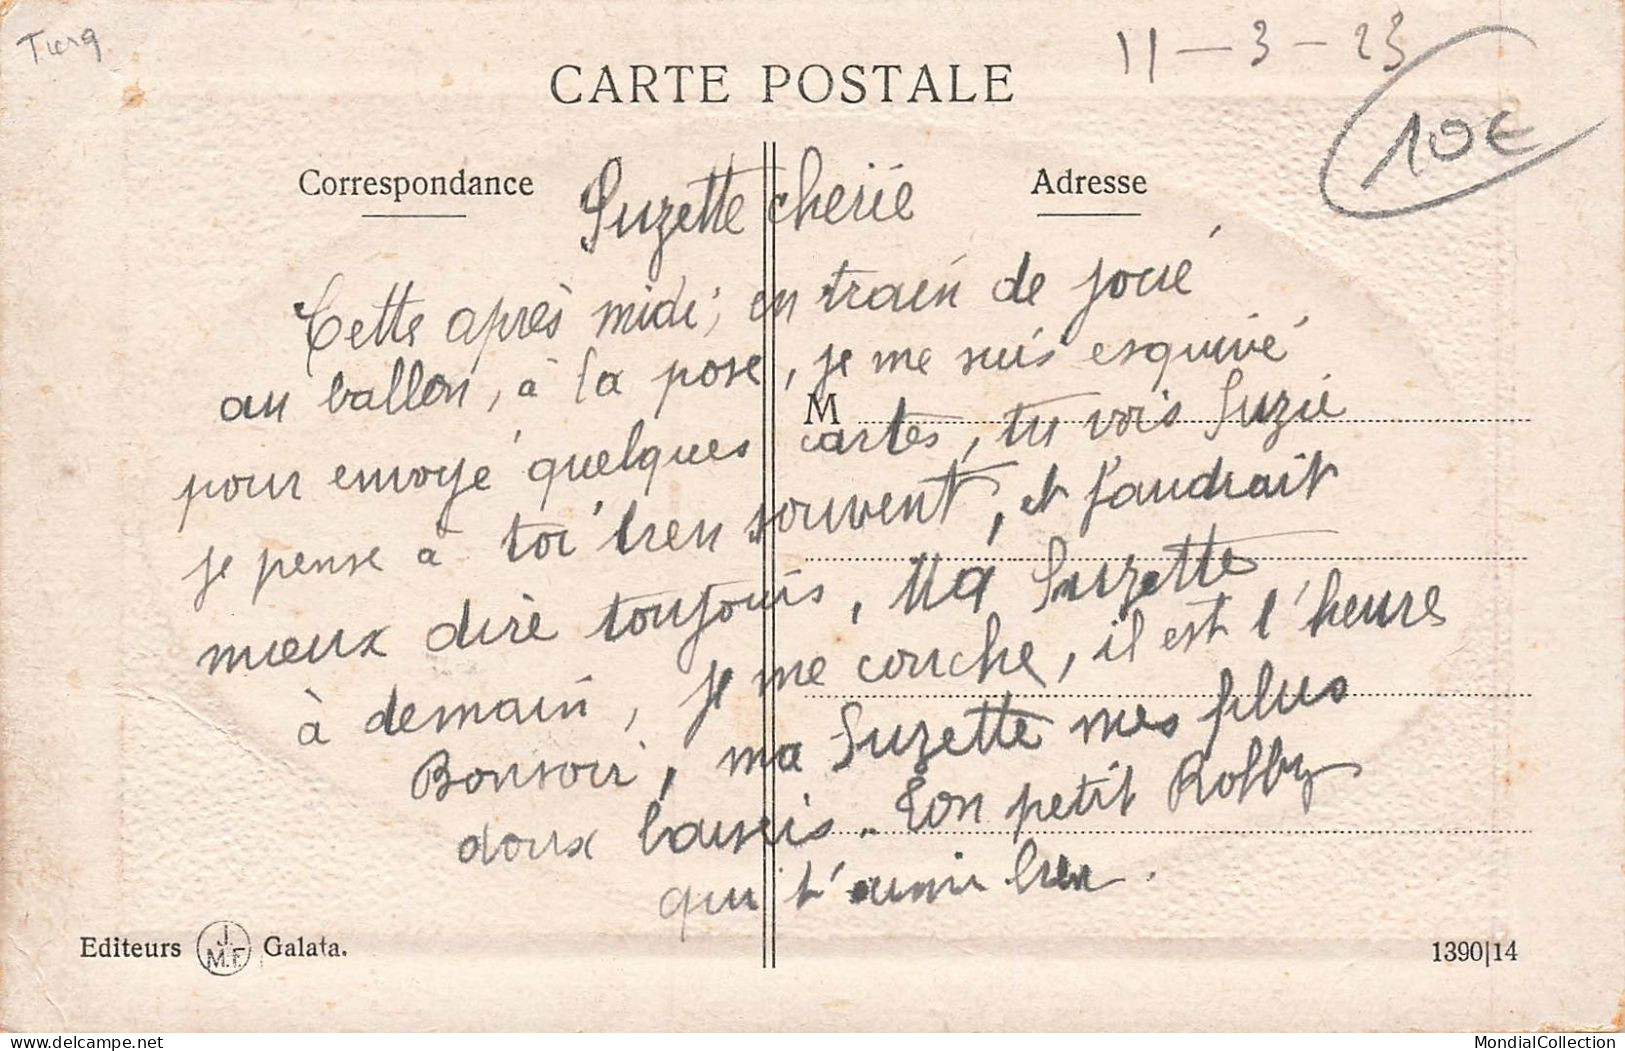 Turq
11-3-23
10€
CARTE POSTALE
Correspondance
Adresse
Suzette cherie
Cette après midi, en train de joué
au ballon, à la pose, je me suis esquivé
M
pour envoyé quelques cartes, tu vois Suzie
je pense à toi bien souvent, et faudrait
mieux dire toujours, Ma Suzette
à demain, je me couche, il est l'heure
Bonsoir, ma Suzette mes plus
doux baisers. Ton petit Robby
qui t'aime bien.
Editeurs J. M.F. Galata.
1390|14
delcampe.net
MondialCollection